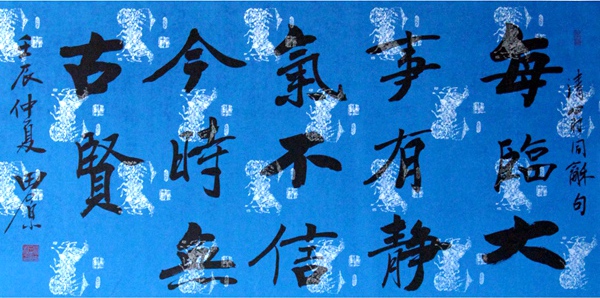 清翁同龢句
每臨大
事有靜
氣不信
今時無
古賢
壬辰仲夏 田